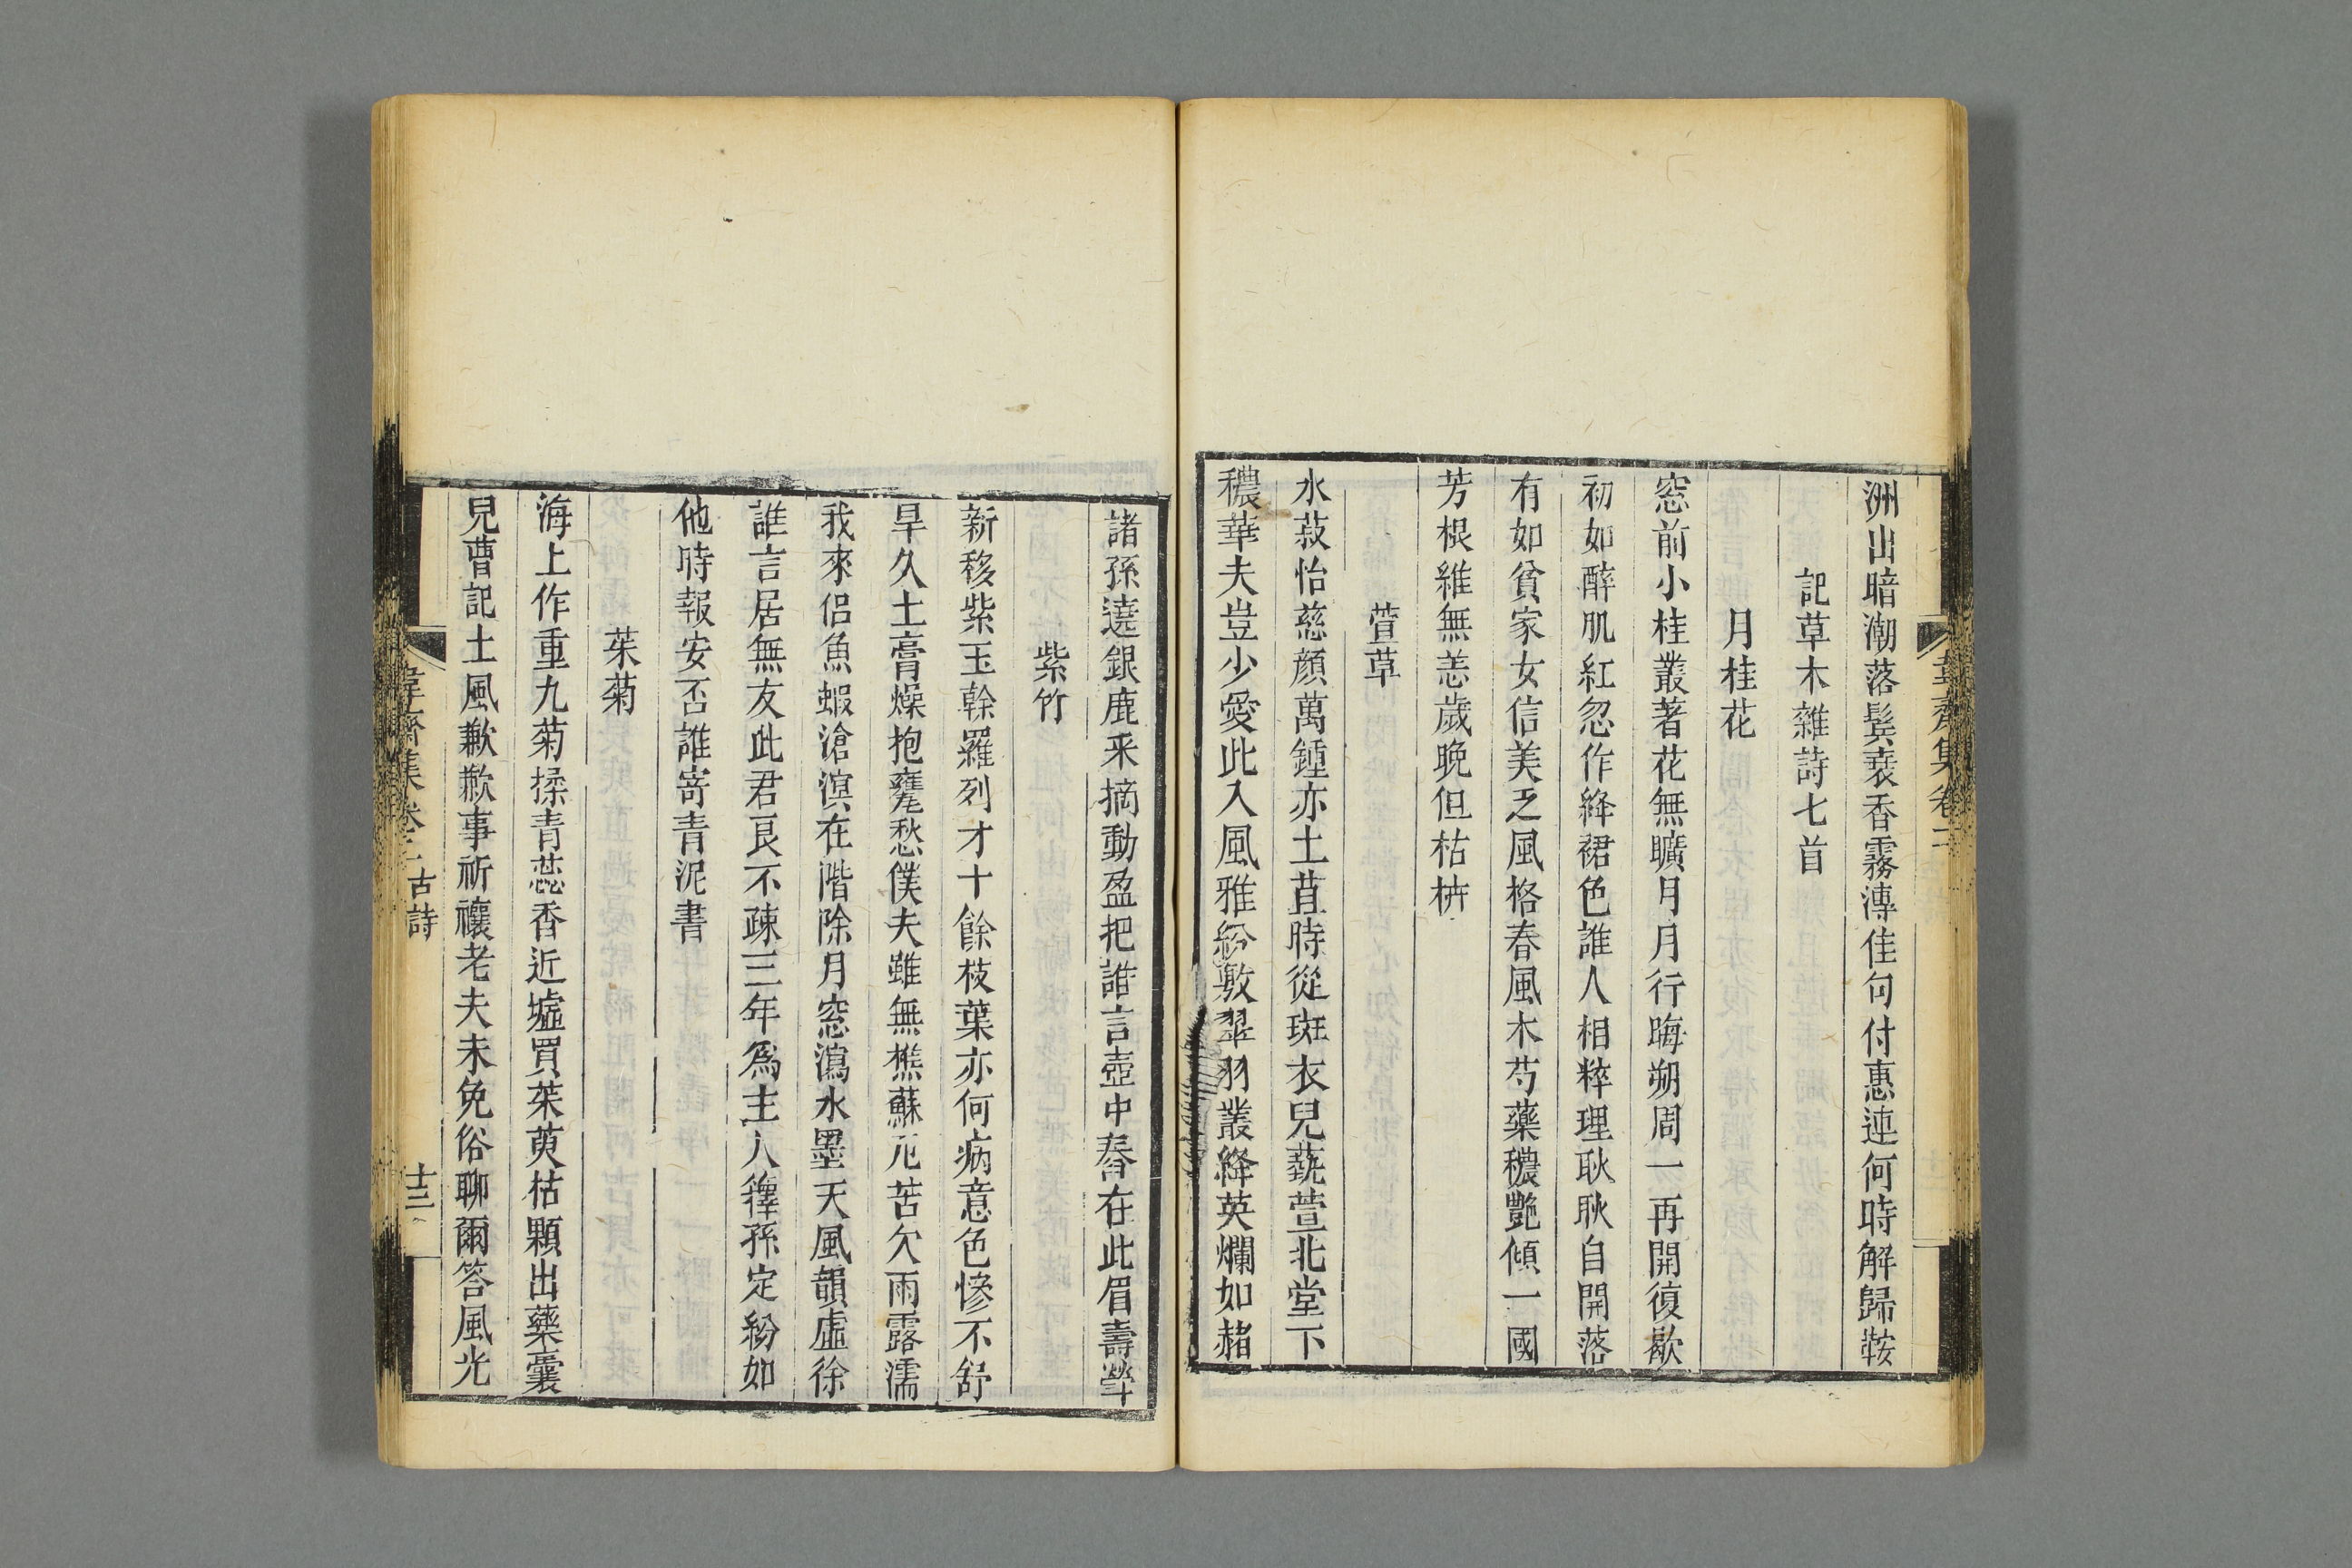 洲出暗潮落鬓襄香霧漙佳句付惠連何時解歸鞍
記草木雜詩七首
月桂花
窓前小桂叢著花無曠月月行晦朔周一再開復歇
初如醉肌紅忽作絳裙色誰人相粹理耿耿自開落
有如貧家女信美乏風格春風木芍藥穠艷傾一國
芳根維無恙歲晚但枯枿
萱草
水菽怡慈顔萬鍾亦土苴時從斑衣兒蓺萱北堂下
穠華夫豈少愛此入風雅紛敷翠羽叢絳英爛如赭
韋齋集卷二
諸孫遶銀鹿釆摘動盈把誰言壺中春在此眉壽斚
紫竹
新移紫玉幹羅列才十餘枝葉亦何病意色慘不舒
旱久土膏燥抱甕愁僕夫雖無樵蘇厄苦欠雨露濡
我來侶魚蝦滄溟在階除月窓瀉水墨天風韻虛徐
誰言居無友此君良不疎三年爲主人稺孫定紛如
他時報安否誰寄青泥書
茱菊
海上作重九菊揉青蕊香近墟買茱萸枯顆出藥囊
兒曹記土風歉歉事祈禳老夫未免俗聊爾答風光
韋齋集卷二 古詩 十三